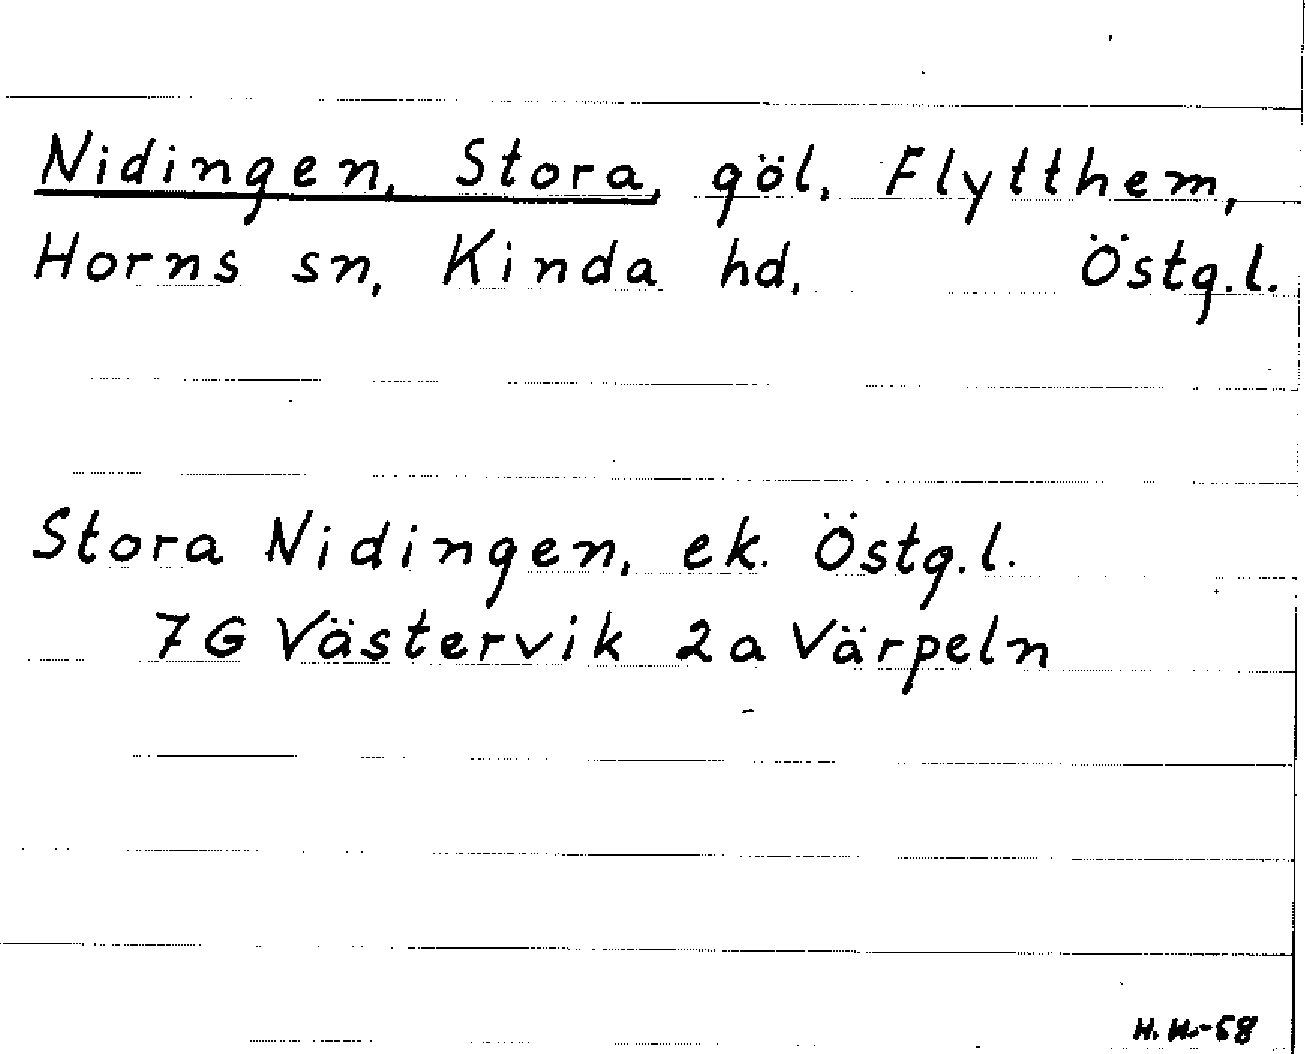 Nidingen, Stora, göl, Flytthem,
Horns sn, Kinda hd, Östg.l.
Stora Nidingen, ek. Östg.l.
7G Västervik 2a Värpeln
H.H.-58